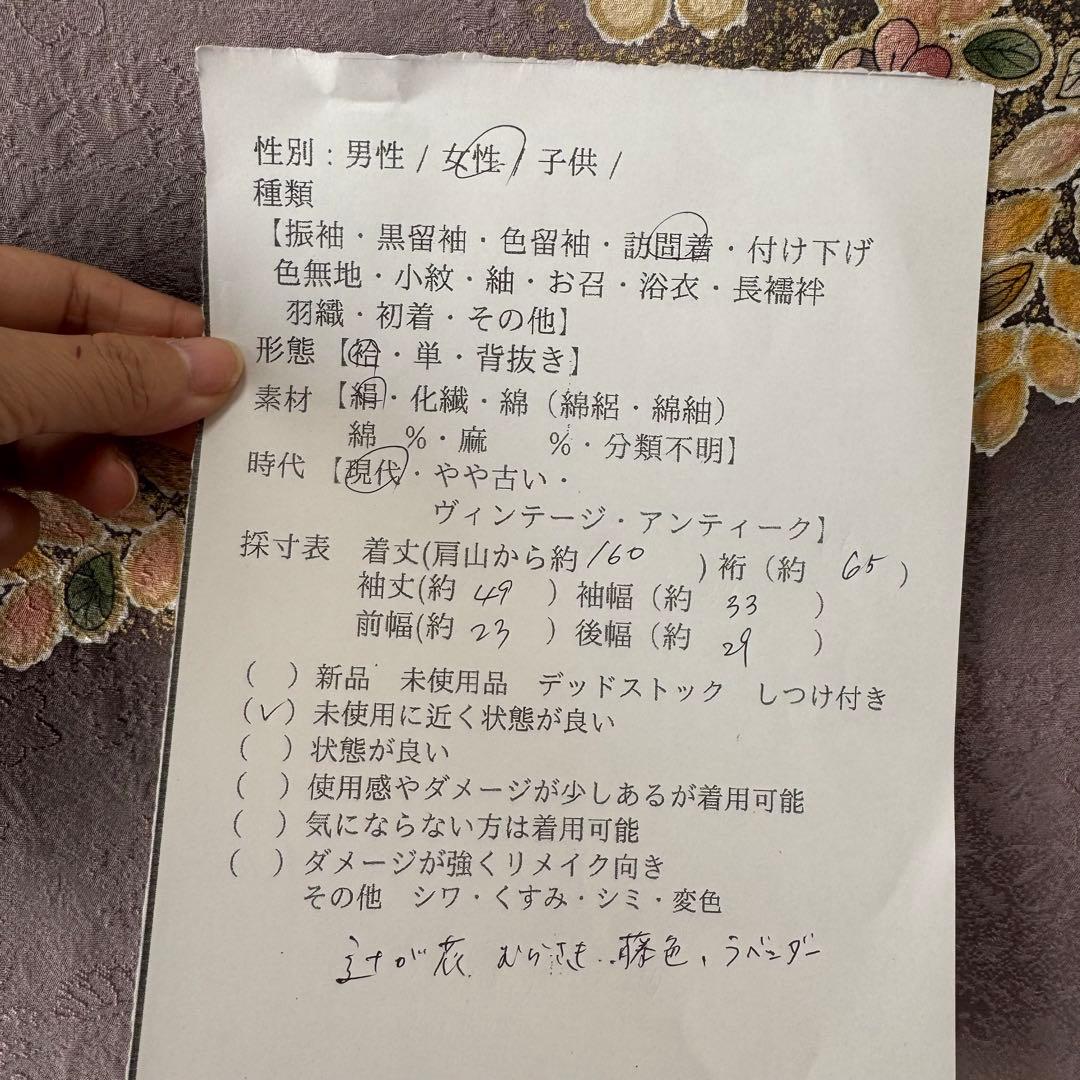 性別：男性 / 女性 / 子供 /
種類
【振袖・黒留袖・色留袖・訪問着・付け下げ
色無地・小紋・紬・お召・浴衣・長襦袢
羽織・初着・その他】
形態 【袷・単・背抜き】
素材 【絹・化繊・綿（綿絽・綿紬）
綿　％・麻　　％・分類不明】
時代 【現代・やや古い・
ヴィンテージ・アンティーク】
採寸表　着丈(肩山から約 160 ) 裄（約 65 ）
袖丈(約 49 ）袖幅（約 33 ）
前幅(約 23 ）後幅（約 29 ）
(　) 新品　未使用品　デッドストック　しつけ付き
(✓) 未使用に近く状態が良い
(　) 状態が良い
(　) 使用感やダメージが少しあるが着用可能
(　) 気にならない方は着用可能
(　) ダメージが強くリメイク向き
その他　シワ・くすみ・シミ・変色
辻が花、むらさき、藤色、ラベンダー